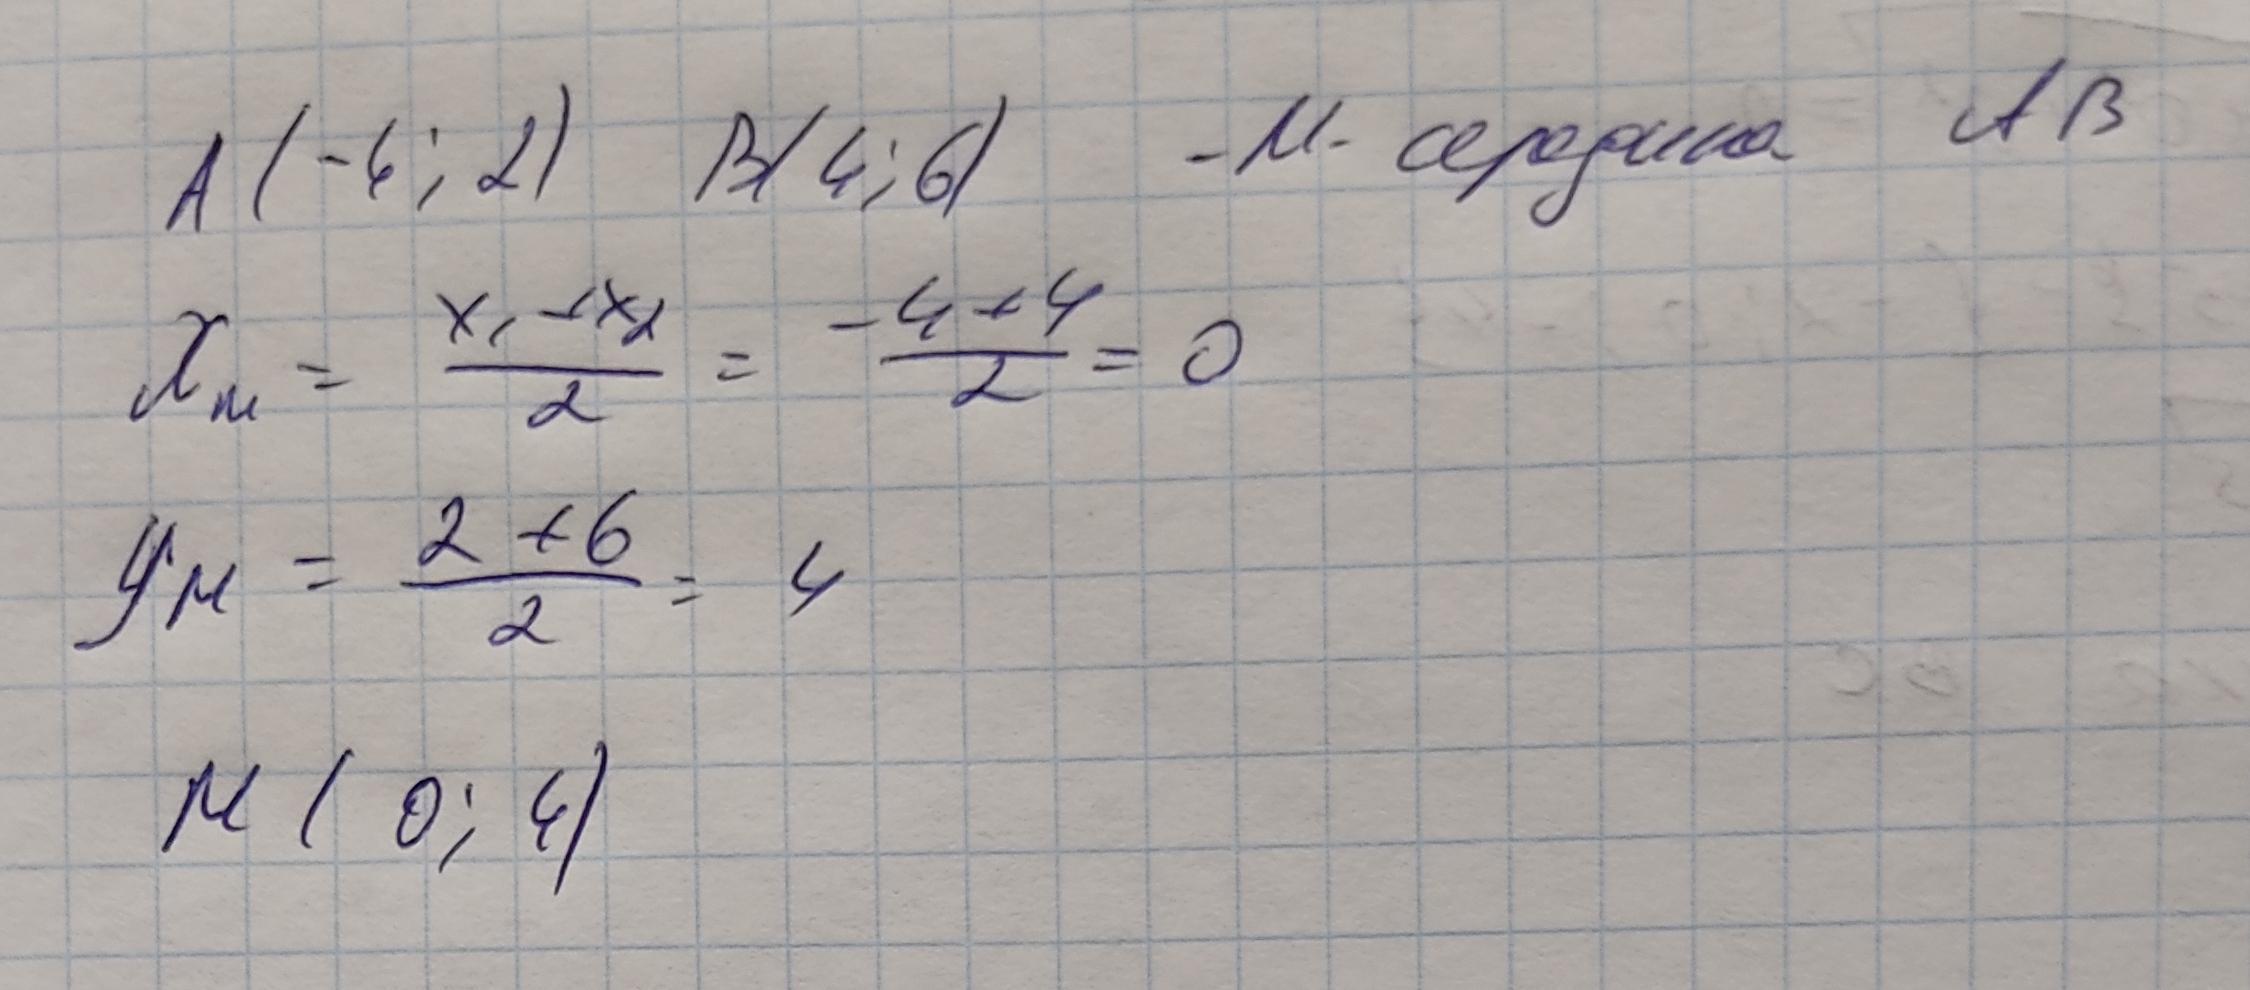 A(-4; 2) B(4; 6) -M- середина AB
Xм = x₁+x₂/2 = -4+4/2 = 0
yм = 2+6/2 = 4
M(0; 4)